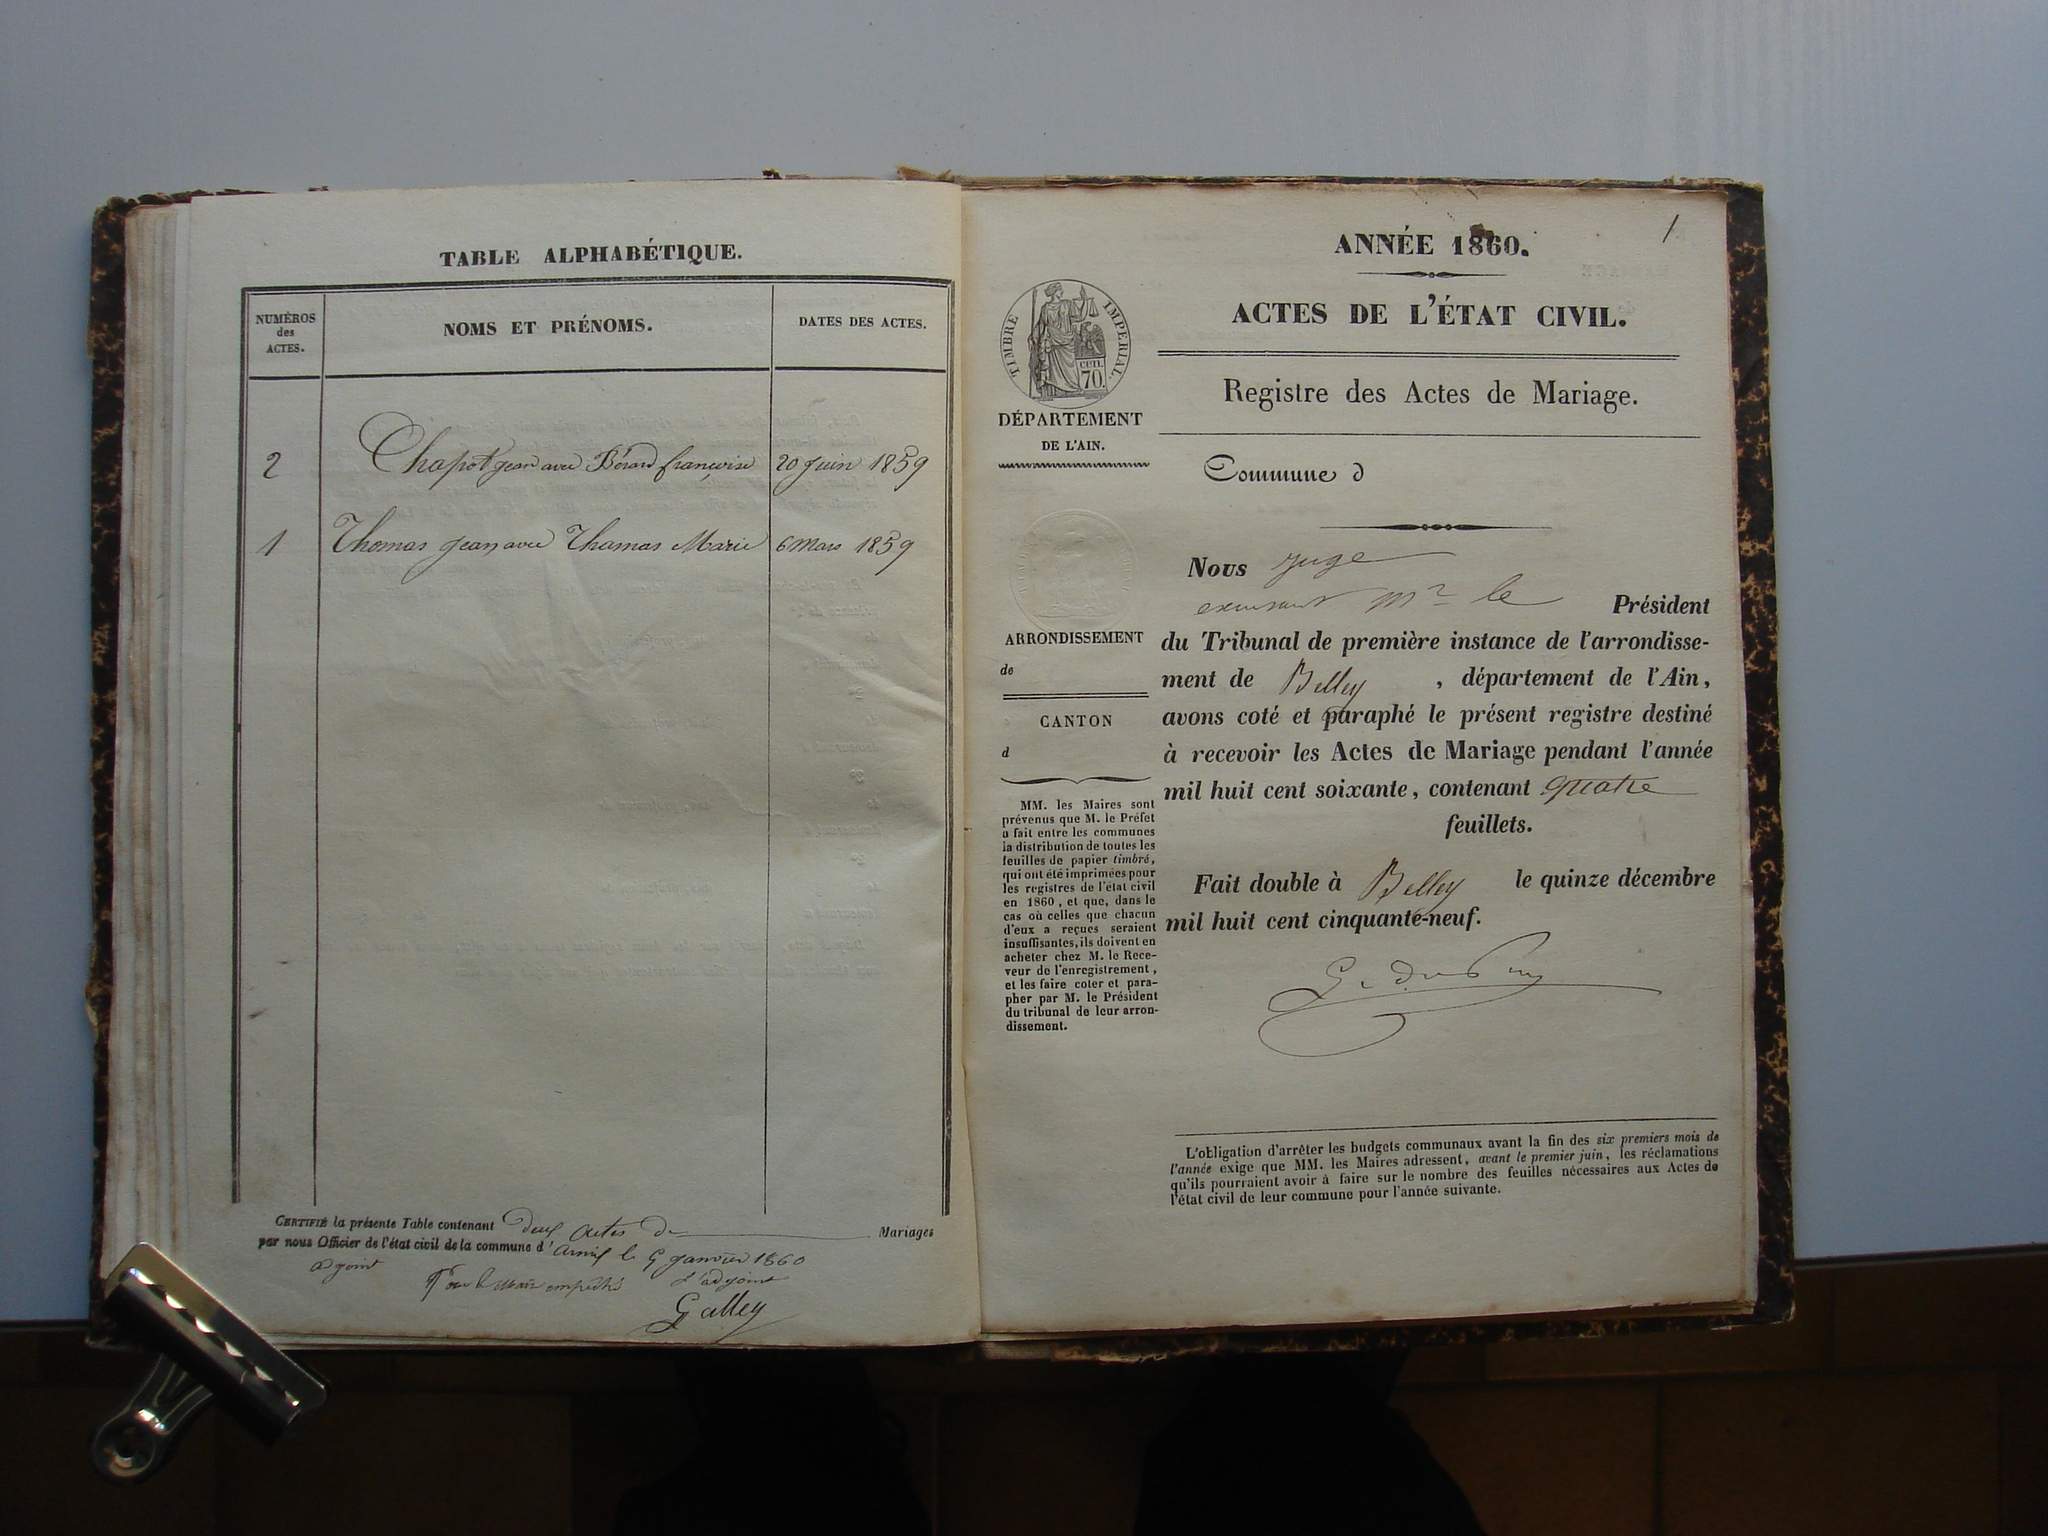 TABLE ALPHABÉTIQUE.
NUMÉROS
des
ACTES.
NOMS ET PRÉNOMS.
DATES DES ACTES.
2 Chapot Jean avec Bérard françoise 20 Juin 1859
1 Thomas Jean avec Thomas Marie 6 Mars 1859
CERTIFIÉ la présente Table contenant deux actes de Mariages
par nous Officier de l'état civil de la commune d' le 9 Janvier 1860
adjoint
Pour le Maire empêché l'adjoint
Galley
1
ANNÉE 1860.
ACTES DE L'ÉTAT CIVIL.
Registre des Actes de Mariage.
TIMBRE IMPÉRIAL.
CEN.
70.
DÉPARTEMENT
DE L'AIN.
ARRONDISSEMENT
de
CANTON
d
MM. les Maires sont
prévenus que M. le Préfet
a fait entre les communes
la distribution de toutes les
feuilles de papier timbré,
qui ont été imprimées pour
les registres de l'état civil
en 1860, et que, dans le
cas où celles que chacun
d'eux a reçues seraient
insuffisantes, ils doivent en
acheter chez M. le Rece-
veur de l'enregistrement,
et les faire coter et para-
pher par M. le Président
du tribunal de leur arron-
dissement.
Commune d
Nous juge
Mr le Président
du Tribunal de première instance de l'arrondisse-
ment de Belley, département de l'Ain,
avons coté et paraphé le présent registre destiné
à recevoir les Actes de Mariage pendant l'année
mil huit cent soixante, contenant quatre
feuillets.
Fait double à Belley le quinze décembre
mil huit cent cinquante-neuf.
L'obligation d'arrêter les budgets communaux avant la fin des six premiers mois de
l'année exige que MM. les Maires adressent, avant le premier juin, les réclamations
qu'ils pourraient avoir à faire sur le nombre des feuilles nécessaires aux Actes de
l'état civil de leur commune pour l'année suivante.